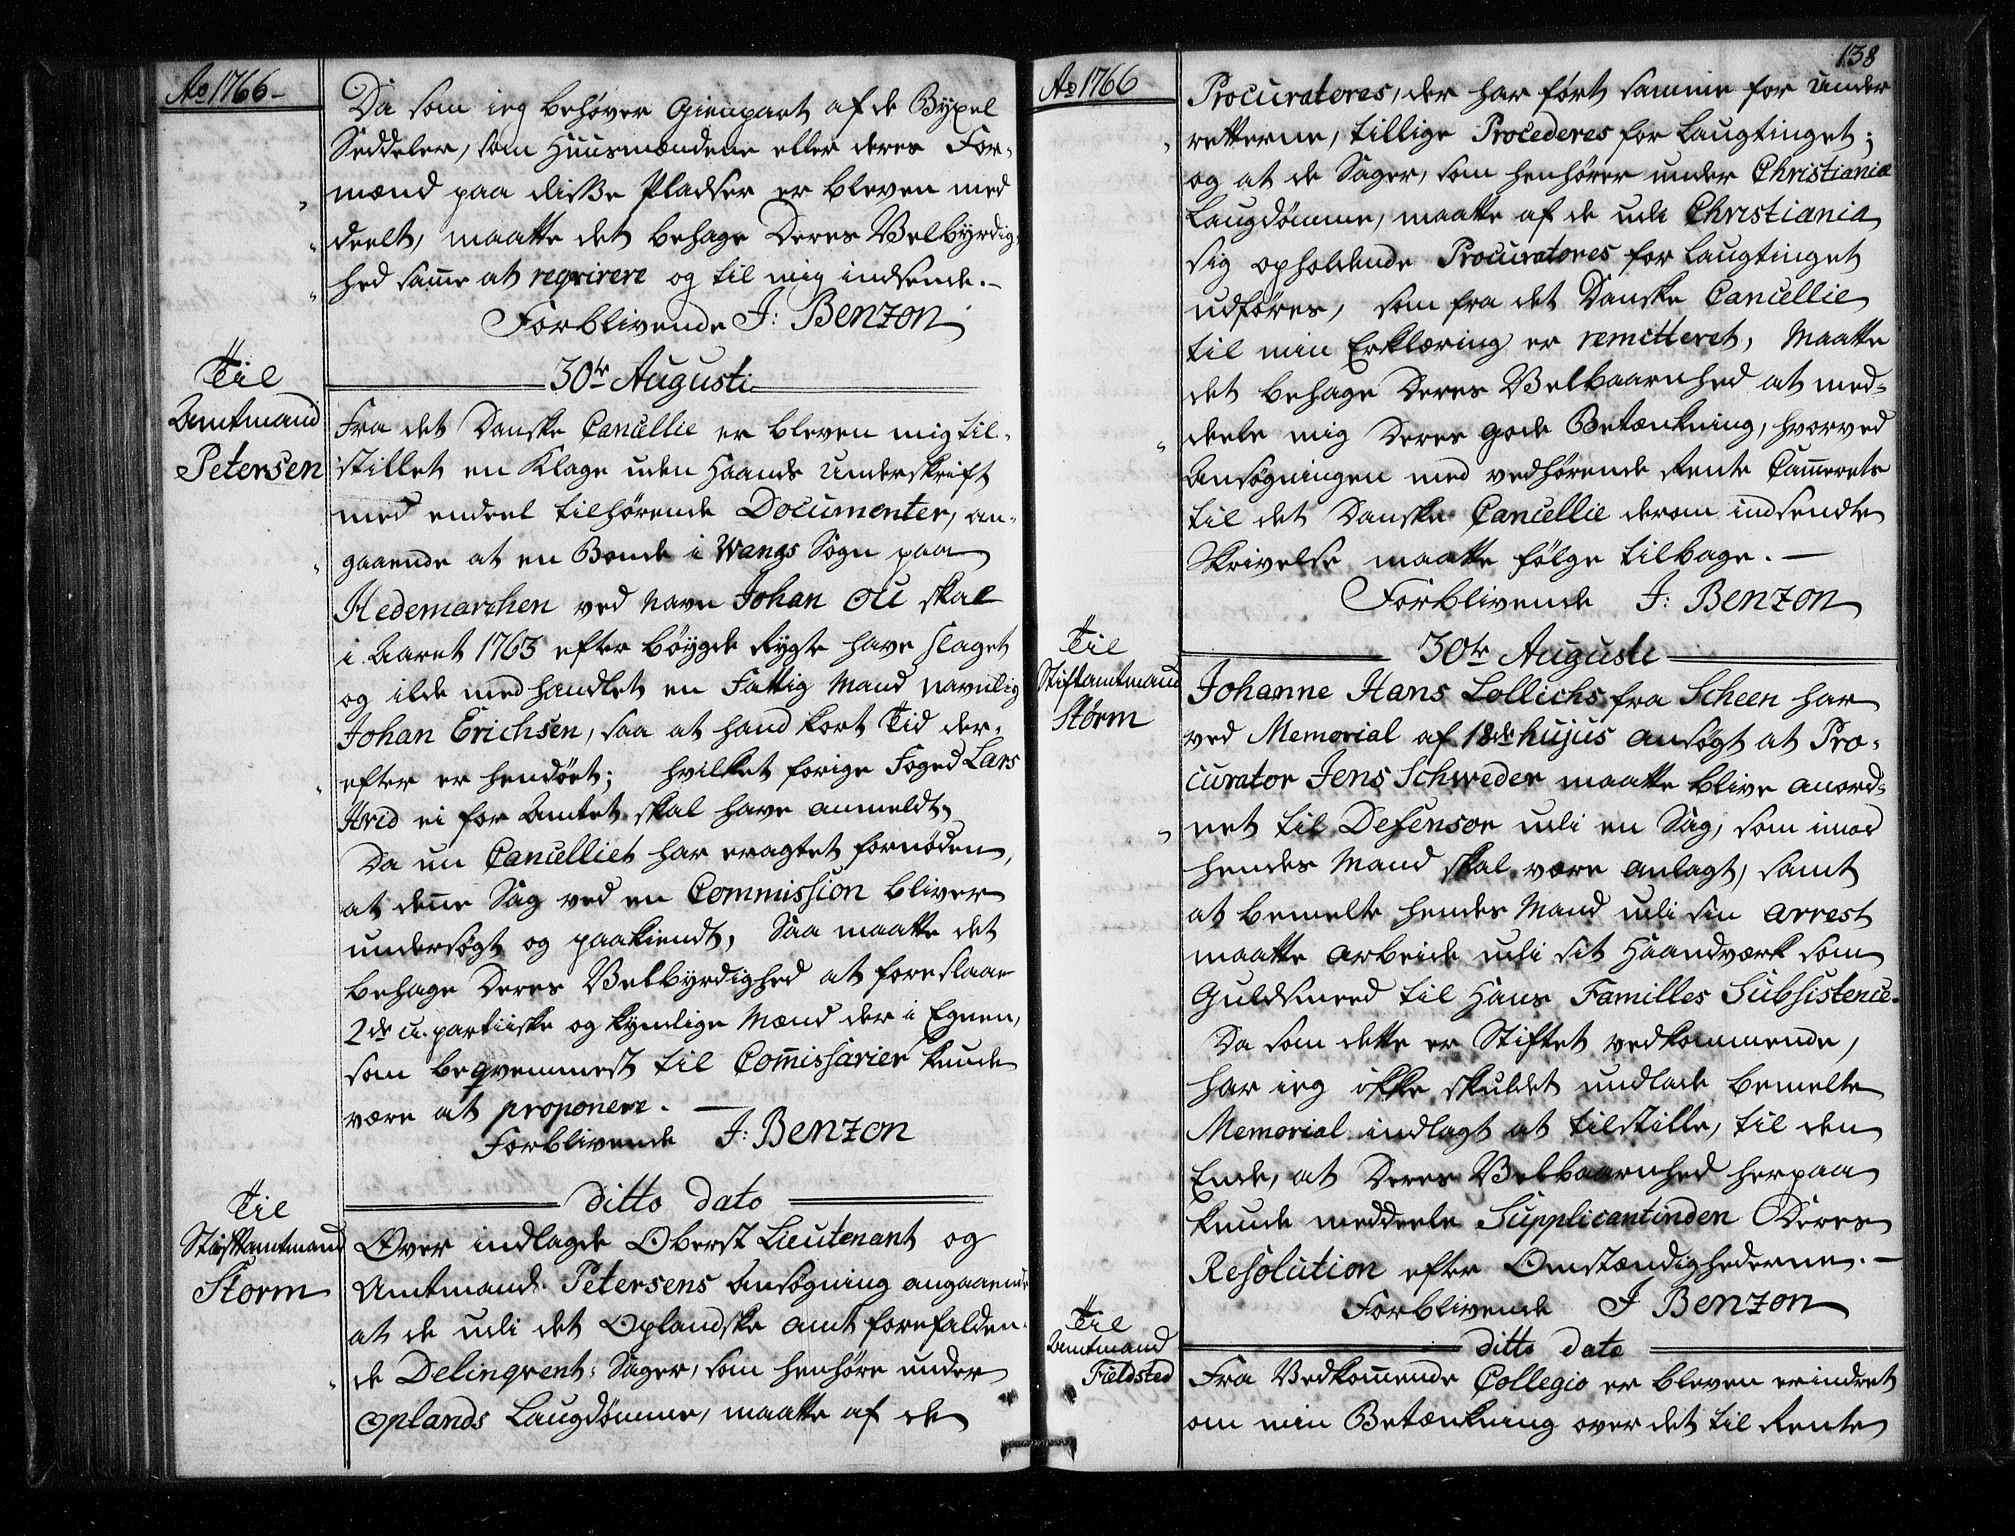 Ao 1766
Da som ieg behøver Gienpart af de Byxel
Seddeler, som Huusmændene eller deres For-
mænd paa disse Pladser er bleven med
deelt, maatte det behage Deres Velbyrdig-
hed samme at reqvirere og til mig indsende.
Forblivende J: Benzon
30te Augusti
Til
Amtmand
Petersen
Fra det Danske Cancellie er bleven mig til-
stillet en Klage uden Haands Underskrift
med endeel tilhørende Documenter, an-
gaaende at en Bonde i Wangs Sogn paa
Hedemarchen ved Navn Johan Ou skal
i Aaret 1763 efter bøygde Rygte have slaget
og ilde medhandlet en Fattig Mand navnlig
Johan Erichsen, saa at hand kort Tid der-
efter er hendøet; hvilket forige Foged Lars
Hvid ei for Amtet skal have anmeldt,
Da nu Cancelliet har eragtet fornøden,
at denne Sag ved en Commission bliver
undersøgt og paakiendt, Saa maatte det
behage Deres Velbyrdighed at foreslaae
2de u-partiiske og kyndige Mænd der i Egnen,
som beqvemmest til Commissarier kunde
være at proponere.
Forblivende J: Benzon
ditto dato
Til
Stiftamtmand
Storm
Over indlagde Oberst Lieutenant og
Amtmand Petersens Ansøgning angaaende
at de udi det Oplandske Amt forefalden-
de Delinqvent-Sager, som henhøre under
Oplands Laugdømme, maatte af de
138
Ao 1766
Procuratores, der har ført samme for Under
retterne, tillige Procederes for Laugtinget;
og at de Sager, som henhører under Christianiæ
Laugdømme, maatte af de udi Christiania
sig opholdende Procuratores for Laugtinget
udføres, som fra det Danske Cancellie
til min Erklæring er remitteret, Maatte
det behage Deres Velbaarnhed at med-
deele mig Deres gode Betænkning, hvorved
Ansøgningen med vedhørende Rente Cammerets
til det Danske Cancellie derom indsendte
Skrivelse maatte følge tilbage.
Forblivende J: Benzon
30te Augusti
Til
Stiftamtmand
Storm
Johanne Hans Lollichs fra Scheen har
ved Memorial af 18de hujus ansøgt at Pro-
curator Jens Schweder maatte blive anord-
net til Defensor udi en Sag, som imod
hendes Mand skal være anlagt, samt
at bemelte hendes Mand udi sin Arrest
maatte arbeide udi sit Haandværk som
Guldsmed til Hans Familles Subsistence.
Da som dette er Stiftet vedkommende,
har ieg ikke skuldet undlade bemelte
Memorial indlagt at tilstille, til den
Ende, at Deres Velbaarnhed herpaa
kunde meddeele Supplicantinden Deres
Resolution efter Omstændighederne.
Forblivende J Benzon
ditto dato
Til
Amtmand
Fieldsted
Fra Vedkommende Collegio er bleven erindret
om min Betænkning over det til Rente